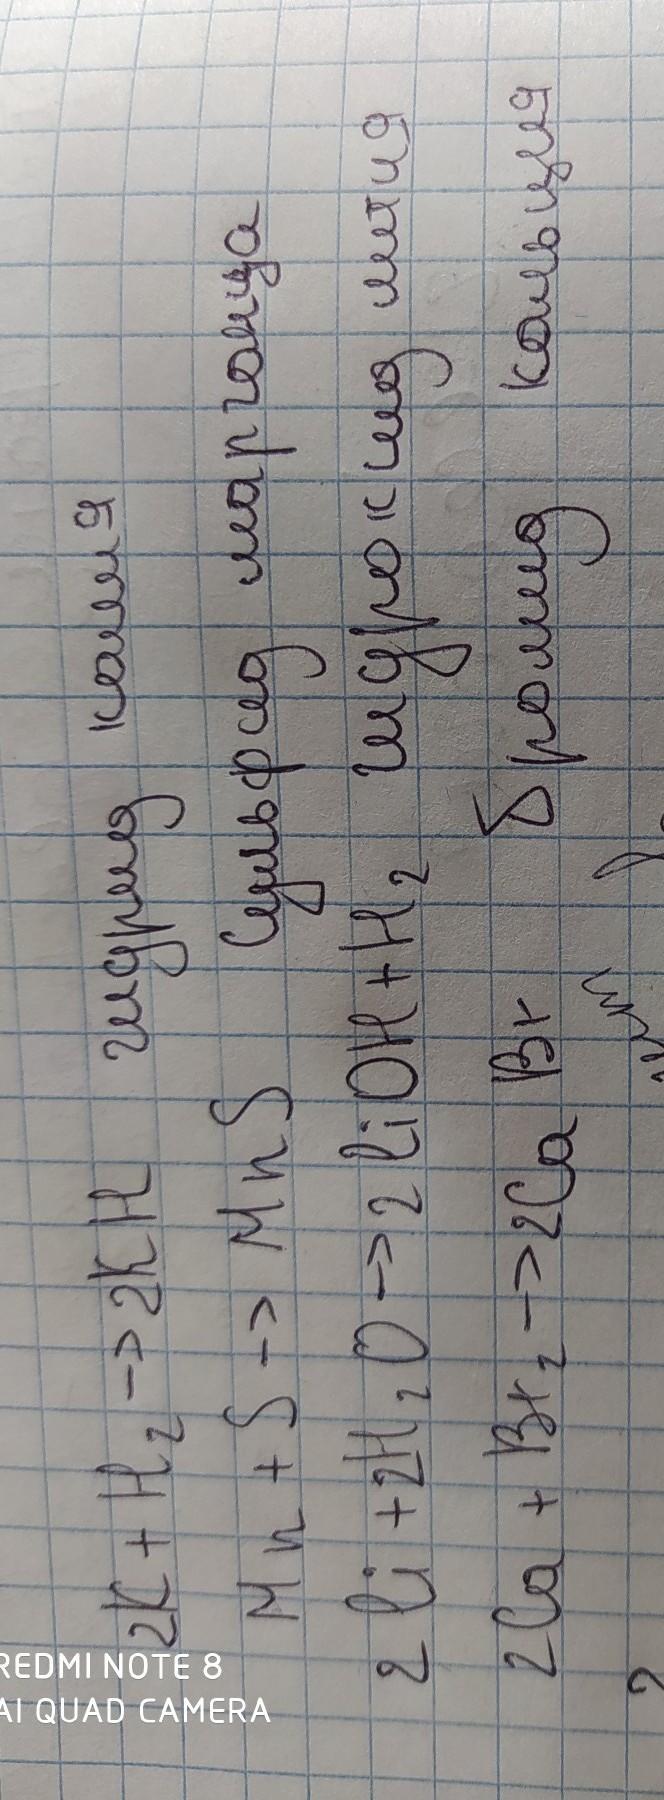 2K + H₂ -> 2KH гидрид калия
Mn + S -> MnS Сульфид марганца
2Li + 2H₂O -> 2LiOH + H₂ гидроксид лития
2Ca + Br₂ -> 2CaBr бромид кальция
REDMI NOTE 8
AI QUAD CAMERA